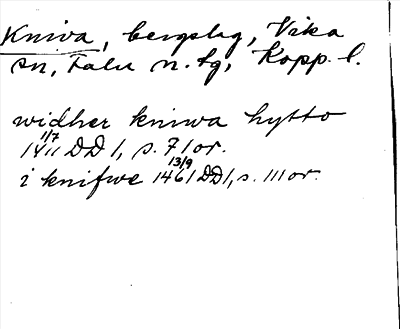 Kniva, bergslag, Vika
sn, Falu n. tg, Kopp. l.
widher kniwa hytto
1/7
1411 DD 1, s. 71 or.
13/9
i knifwe 1461 DD1, s. 111 or.